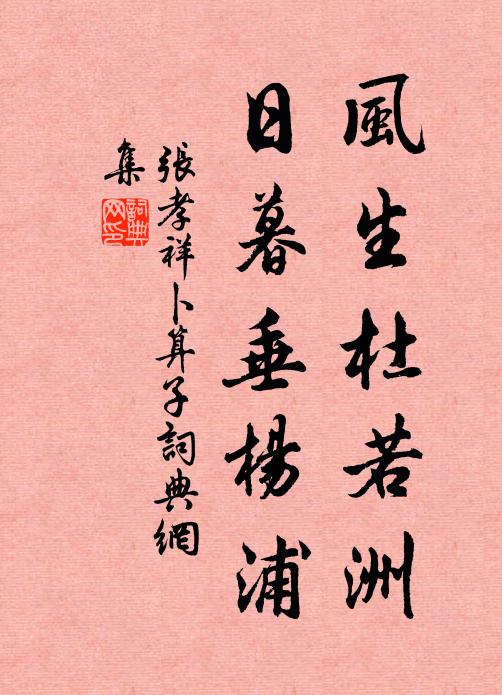 風生杜若洲
日暮垂楊浦
張孝祥卜算子詞典網
集
詞典
网印